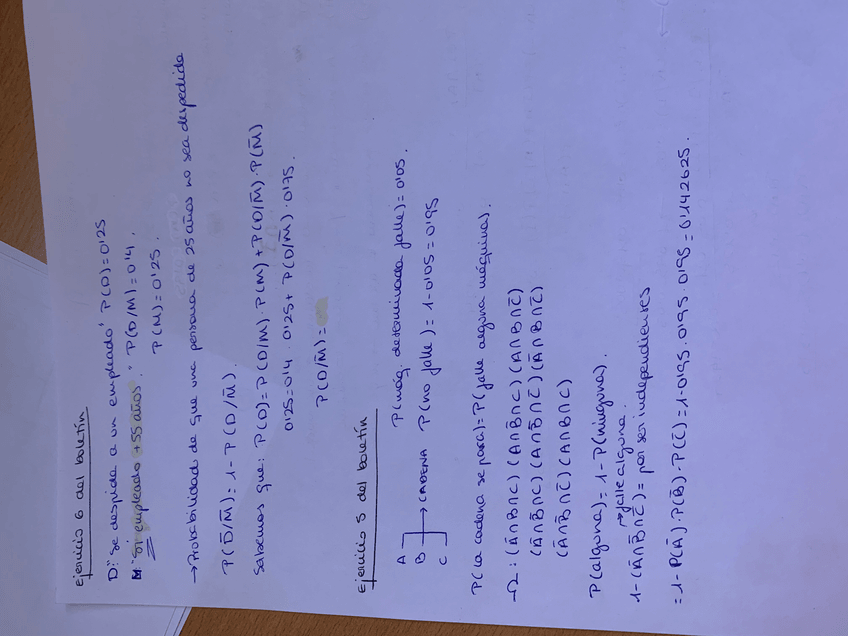 Ejercicio 6 del boletín
D: "se despida a un empleado" P(D)=0'25
M: "Si empleado +55 años." P(D/M)=0'4.
P(M)=0'25.
→Probabilidad de que una persona de 25 años no sea despedida
P(D̄/M̄)=1-P(D/M̄).
Sabemos que: P(D)=P(D/M)·P(M)+P(D/M̄)·P(M̄)
0'25=0'4·0'25+P(D/M̄)·0'75.
P(D/M̄)=
Ejercicio 5 del boletín
A
B → CADENA
C
P(máq. determinada falle)=0'05.
P(no falle)=1-0'05=0'95
P(la cadena se para)=P(falle alguna máquina).
Ω: (Ā∩B̄∩C)(A∩B̄∩C)(A∩B∩C̄)
(Ā∩B∩C)(A∩B̄∩C̄)(Ā∩B∩C̄)
(Ā∩B̄∩C̄)(A∩B∩C)
P(alguna)=1-P(ninguna).
→falle alguna.
1-(Ā∩B̄∩C̄)= por ser independientes
=1-P(Ā)·P(B̄)·P(C̄)=1-0'95·0'95·0'95=0'142625.